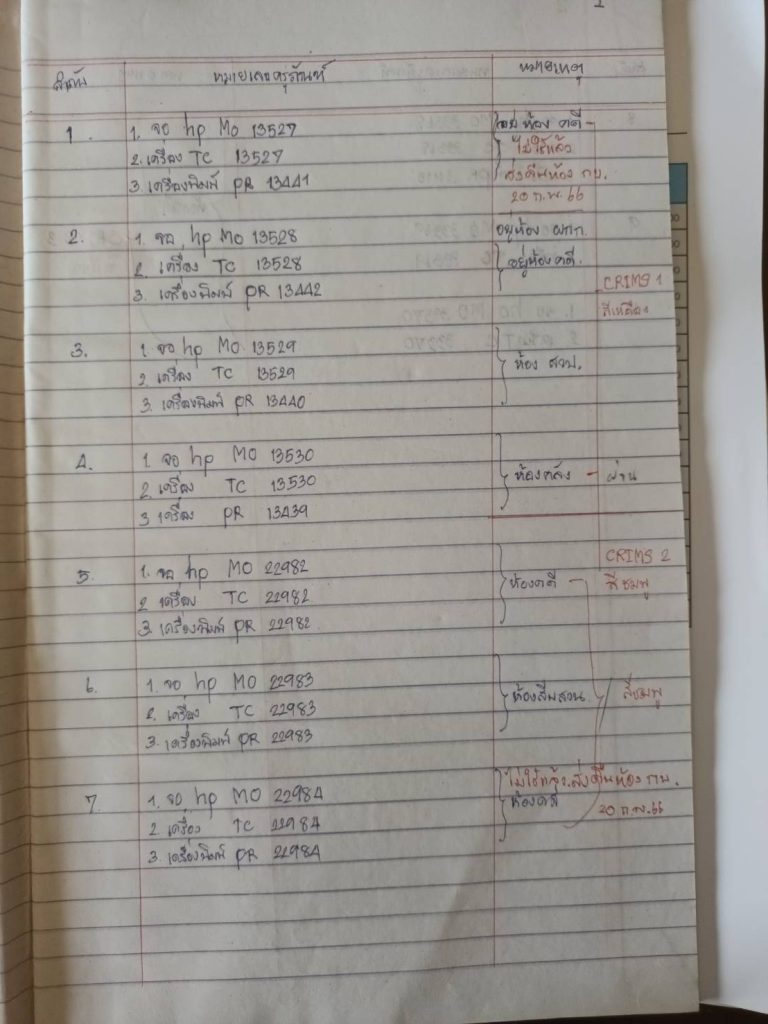 1
ลำดับ หมายเลขครุภัณฑ์ หมายเหตุ
1. 1. จอ hp MO 13527 อยู่ห้อง คดี -
2. เครื่อง TC 13527 ไม่ใช้แล้ว
3. เครื่องพิมพ์ PR 13441 ส่งคืนห้อง กบ.
20 ก.พ. 66
2. 1. จอ hp MO 13528 อยู่ห้อง ผกก.
2. เครื่อง TC 13528 อยู่ห้องคดี.
3. เครื่องพิมพ์ PR 13442 CRIMS 1
สีเหลือง
3. 1. จอ hp MO 13529
2. เครื่อง TC 13529 ห้อง สวป.
3. เครื่องพิมพ์ PR 13440
4. 1. จอ hp MO 13530
2. เครื่อง TC 13530 ห้อง - ผ่าน
3. เครื่อง PR 13439
5. 1. จอ hp MO 22982 CRIMS 2
2. เครื่อง TC 22982 ห้องคดี - สีชมพู
3. เครื่องพิมพ์ PR 22982
6. 1. จอ hp MO 22983
2. เครื่อง TC 22983 ห้องสืบสวน สีชมพู
3. เครื่องพิมพ์ PR 22983
7. 1. จอ hp MO 22984 ไม่ใช้แล้ว. ส่งคืนห้อง กบ.
2. เครื่อง TC 22984 ห้องคดี 20 ก.พ. 66
3. เครื่องพิมพ์ PR 22984